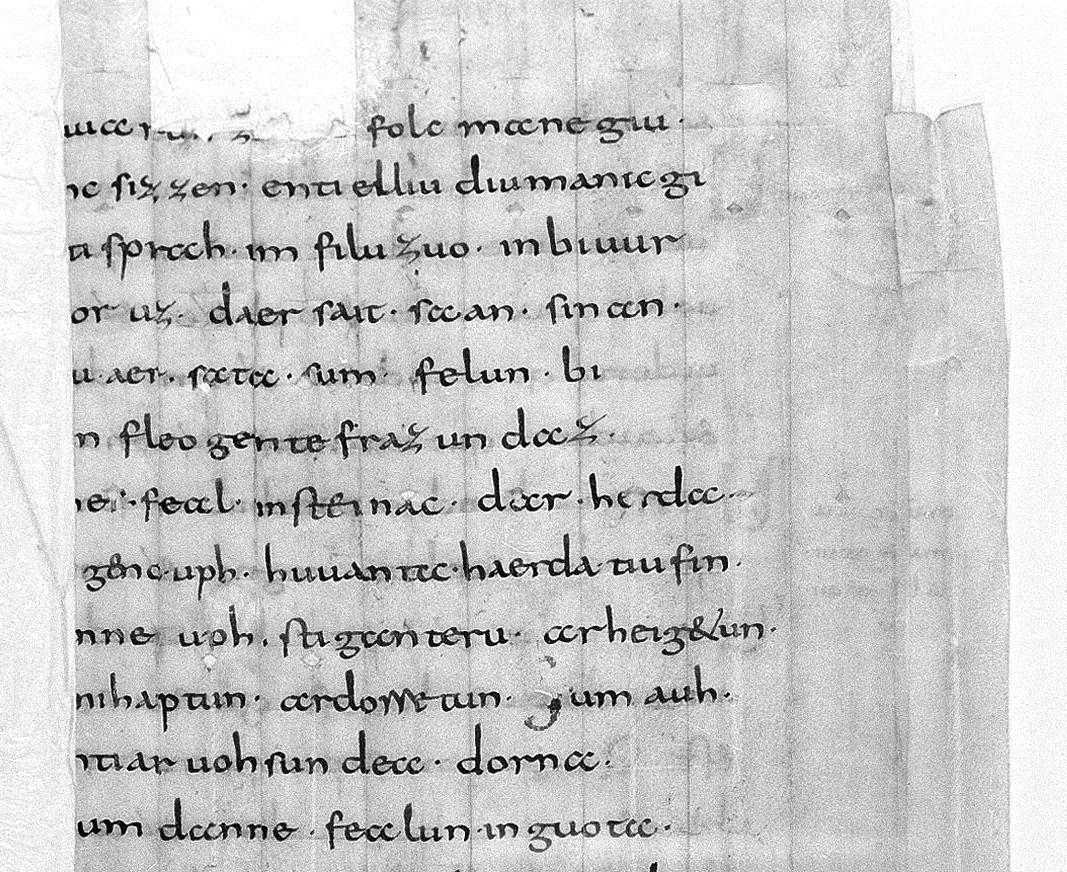 folc manegiu.
sizzen. enti elliu diu manic gi
ti sprach. im filu zuo. in biuuur
or uz. daer sait. sa an. sinan.
u aer. sata. sum felun. bi
n fleogente frazun daz.
feal. in steinac. dar. herda
genc uph. huuanta. haerda tiufin.
nne uph. stiganteru. arheig&un.
ni haptun. ardorretun. Sum auh.
ntiar uohsun dea. dorna.
um danne. fealun. in guota.